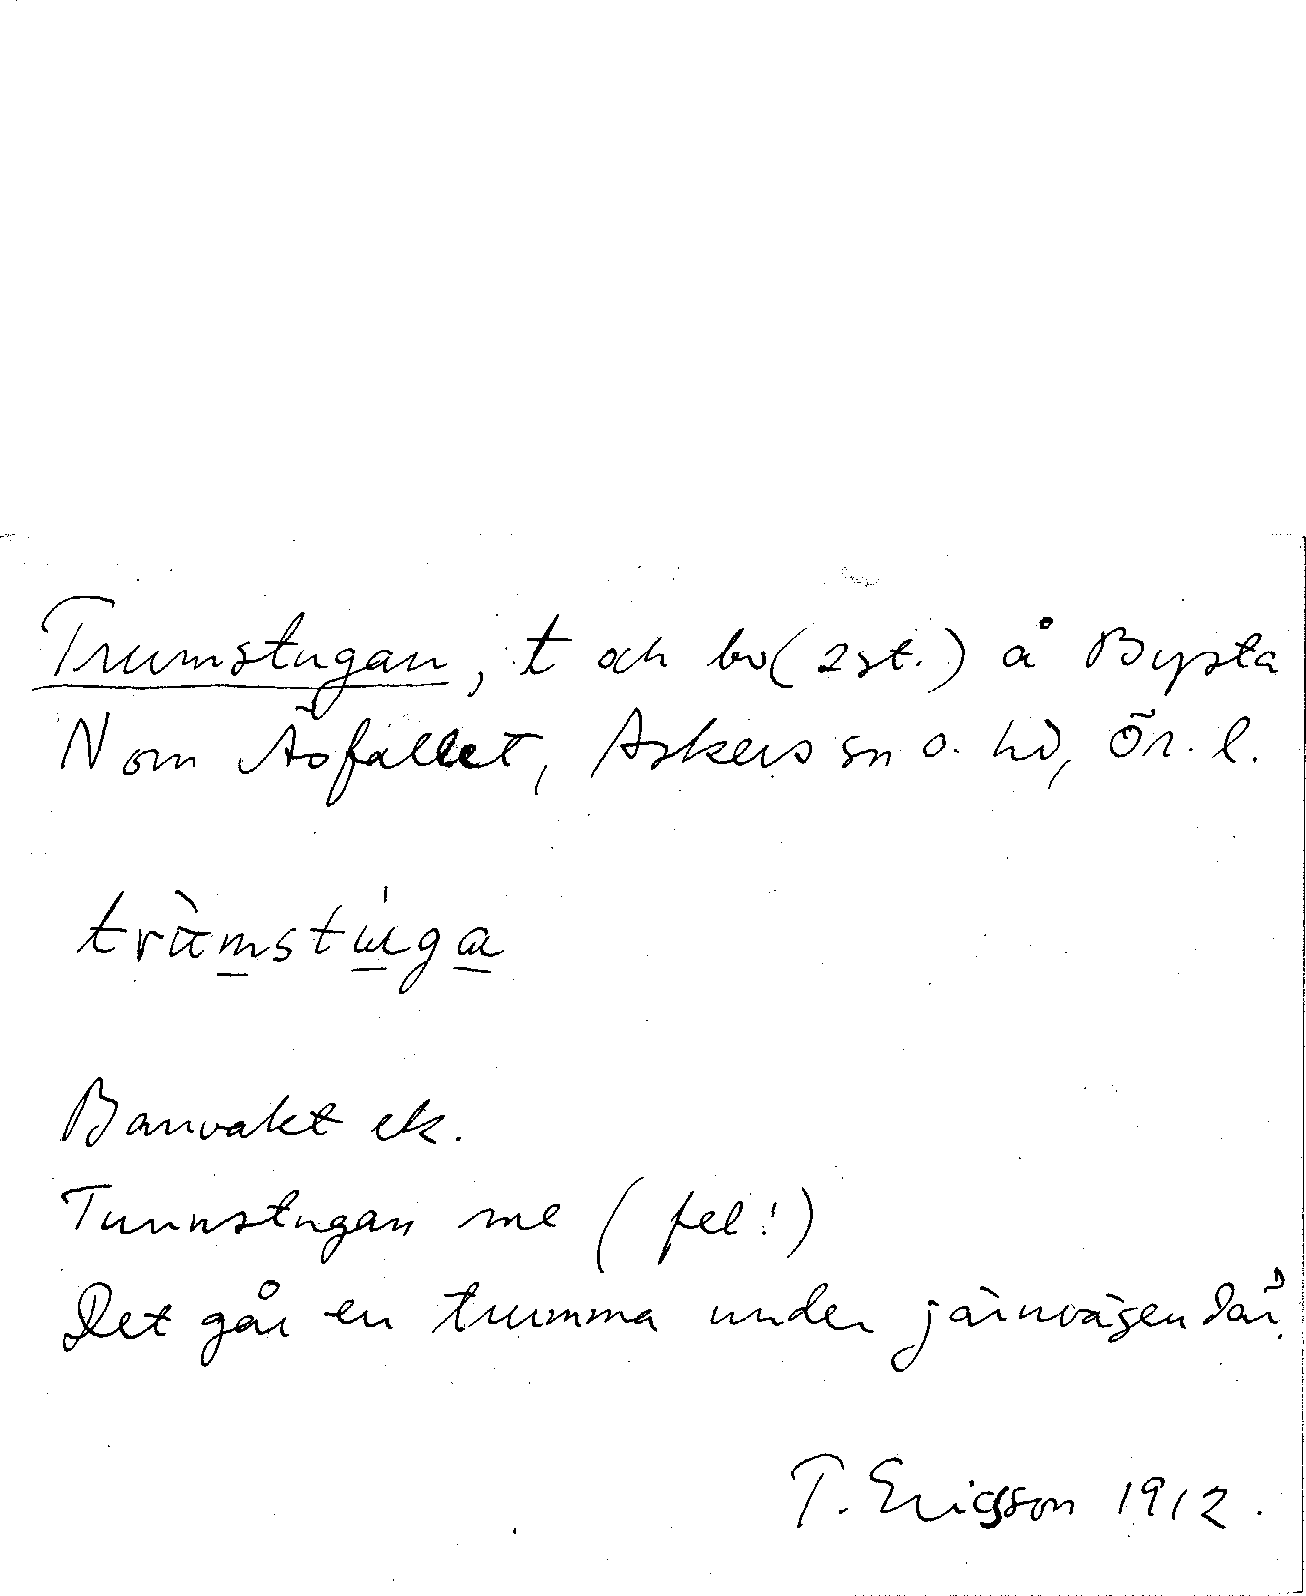 Trumstugan, t och bv (2 st.) å Bysta
N om Åsfallet, Askers sn o. hd, Ör. l.
tràmstùga
Banvakt ek.
Tunnstugan me (fel!)
Det går en trumma under järnvägen där.
T. Ericsson 1912.